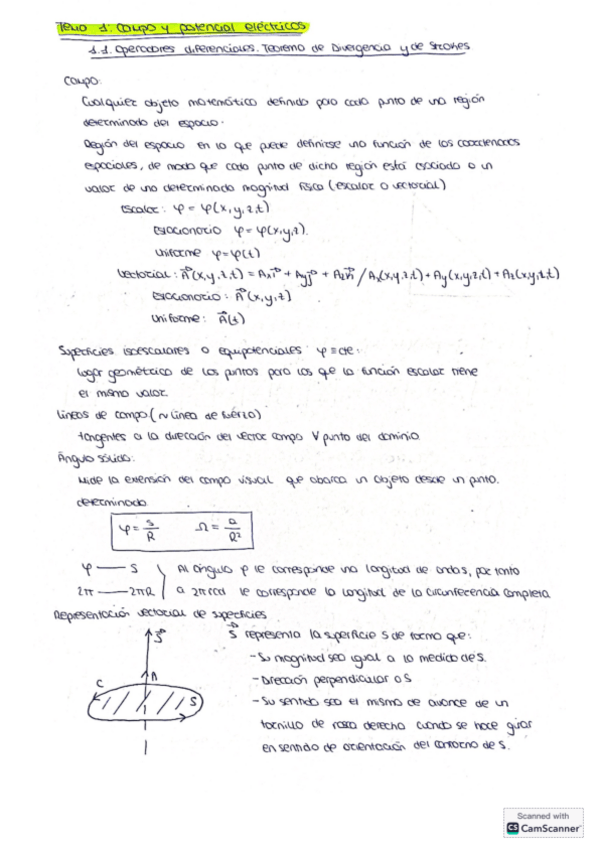 Tema 1: Campo y potencial eléctricos
1.1. Operadores diferenciales. Teorema de Divergencia y de Stokes
Campo:
Cualquier objeto matemático definido para cada punto de una región
determinada del espacio.
Región del espacio en la que puede definirse una función de las coordenadas
espaciales, de modo que cada punto de dicha región está asociado a un
valor de una determinada magnitud física (escalar o vectorial)
Escalar: φ = φ(x,y,z,t)
Estacionario φ = φ(x,y,z).
Uniforme φ=φ(t)
Vectorial: A⃗(x,y,z,t) = Axi⃗ + Ayj⃗ + Azk⃗ / Ax(x,y,z,t)+Ay(x,y,z,t)+Az(x,y,z,t)
Estacionario: A⃗(x,y,z)
Uniforme: A⃗(t)
Superficies isoescalares o equipotenciales φ=cte:
lugar geométrico de los puntos para los que la función escalar tiene
el mismo valor.
Líneas de campo (~ línea de fuerza)
tangentes a la dirección del vector campo ∀ punto del dominio.
Ángulo sólido:
Mide la extensión del campo visual que abarca un objeto desde un punto.
determinado.
φ = s/R Ω = a/R²
φ — S } Al ángulo φ le corresponde una longitud de onda s, por tanto
2π — 2πR } a 2π rad le corresponde la longitud de la circunferencia completa.
Representación vectorial de superficies
S⃗ representa la superficie S de forma que:
- Su magnitud sea igual a la medida de S.
- Dirección perpendicular a S
- Su sentido sea el mismo de avance de un
tornillo de rosca derecha cuando se hace girar
en sentido de orientación del contorno de S.
S⃗
n
C
S
Scanned with
CS CamScanner